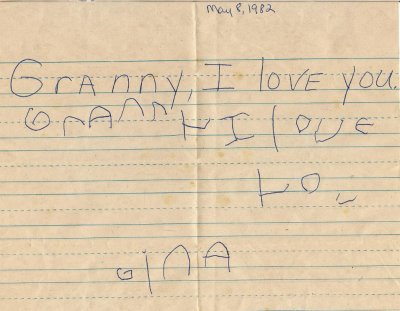 May 8, 1982
Granny, I love you.
GrANNY I loue
YOu
GINA